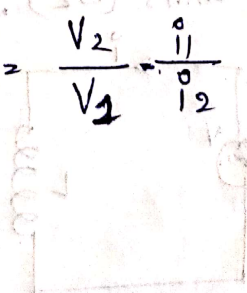 = V2/V1 - i1/i2